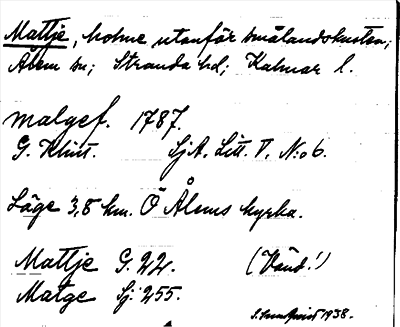 Mattje, holme utanför smålandskusten;
Ålem sn; Stranda hd; Kalmar l.
malgef. 1787.
G. Klint. SjA. Litt. V. N:o 6.
Läge 3,8 km. Ö Ålems kyrka.
Mattje G. 22. (Vänd!)
Matge Sj. 255.
1938.